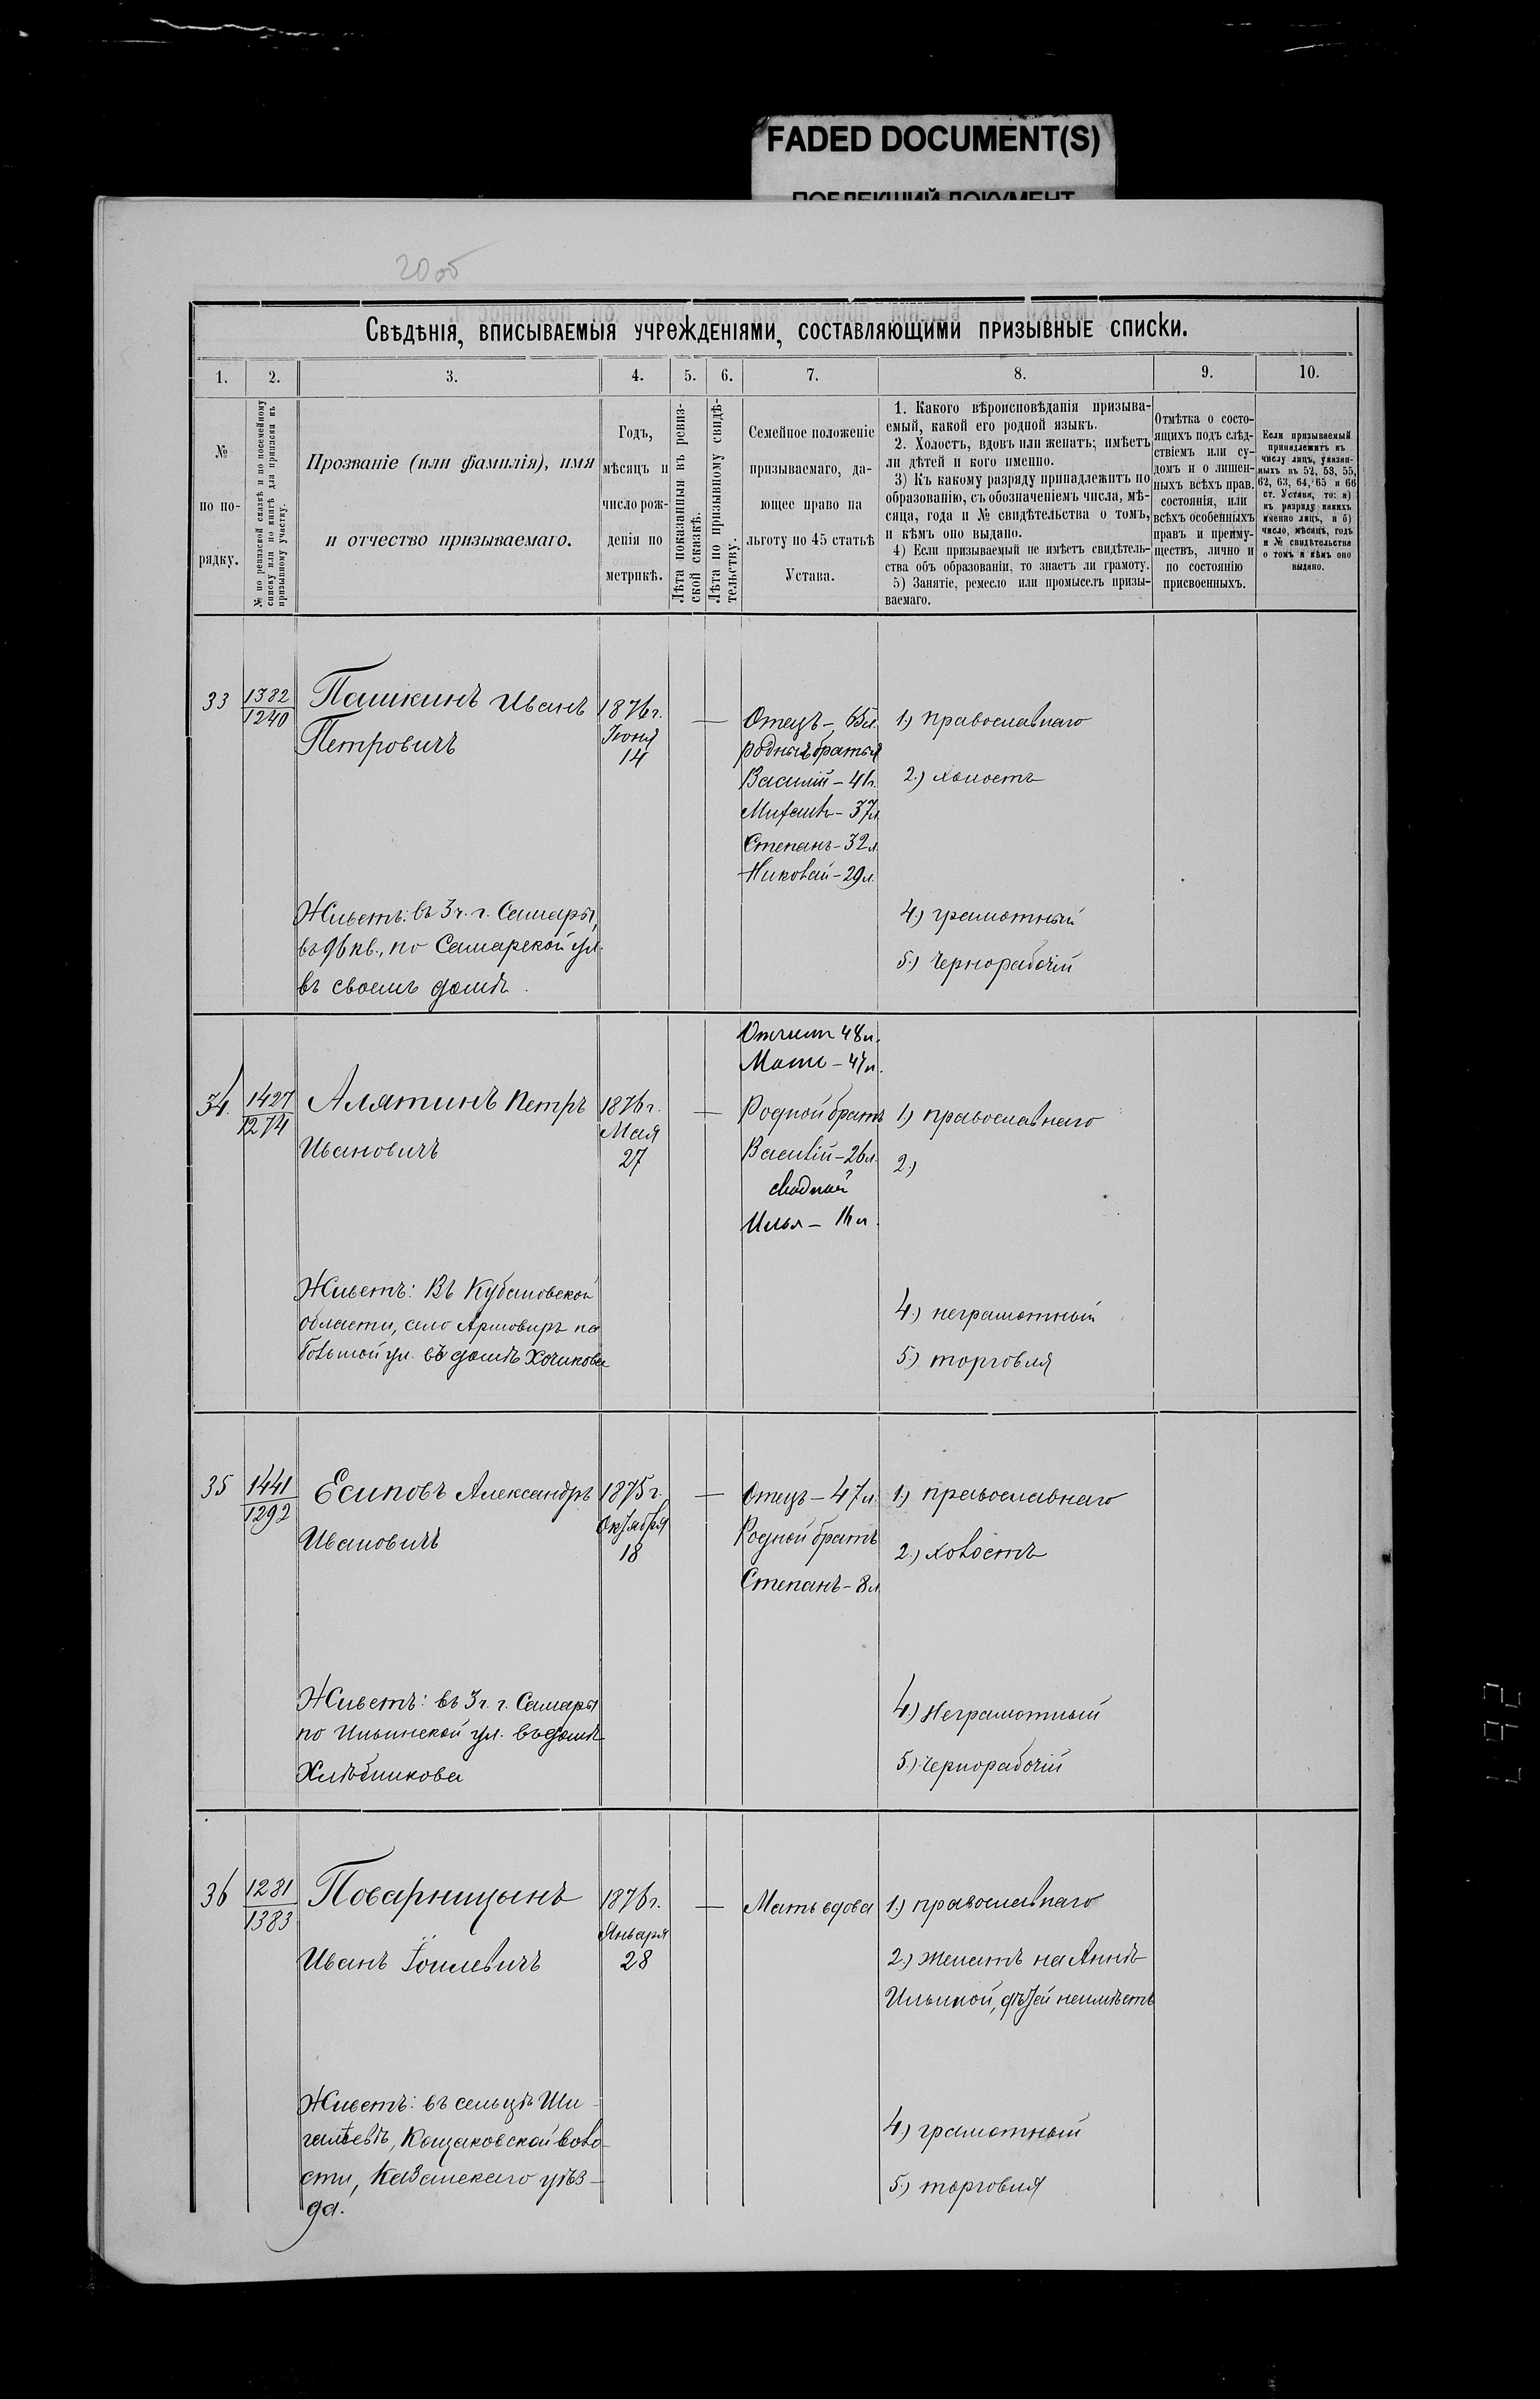 FADED DOCUMENT(S)
ПОБЛЕКШИЙ ДОКУМЕНТ
20 об
Свѣдѣнія, вписываемыя учрежденіями, составляющими призывные списки.
1. 2. 3. 4. 5. 6. 7. 8. 9. 10.
№
по по-
рядку.
№ по ревизской сказкѣ и по посемейному
списку или по книгѣ для приписки къ
призывному участку.
Прозваніе (или фамилія), имя
и отчество призываемаго.
Годъ,
мѣсяцъ и
число рож-
денія по
метрикѣ.
Лѣта показанныя въ ревиз-
ской сказкѣ.
Лѣта по призывному свидѣ-
тельству.
Семейное положеніе
призываемаго, да-
ющее право на
льготу по 45 статьѣ
Устава.
1. Какого вѣроисповѣданія призыва-
емый, какой его родной языкъ.
2. Холостъ, вдовъ или женатъ; имѣетъ
ли дѣтей и кого именно.
3) Къ какому разряду принадлежитъ по
образованію, съ обозначеніемъ числа, мѣ-
сяца, года и № свидѣтельства о томъ,
и кѣмъ оно выдано.
4) Если призываемый не имѣетъ свидѣтель-
ства объ образованіи, то знаетъ ли грамоту.
5) Занятіе, ремесло или промыселъ призы-
ваемаго.
Отмѣтка о состо-
ящихъ подъ слѣд-
ствіемъ или су-
домъ и о лишен-
ныхъ всѣхъ прав.
состоянія, или
всѣхъ особенныхъ
правъ и преиму-
ществъ, лично и
по состоянію
присвоенныхъ.
Если призываемый
принадлежитъ къ
числу лицъ, указан-
ныхъ въ 52, 53, 55,
62, 63, 64, 65 и 66
ст. Устава, то: а)
къ разряду какихъ
именно лицъ, и б)
число, мѣсяцъ, годъ
и № свидѣтельства
о томъ и кѣмъ оно
выдано.
33
1382
1240
Пашкинъ Иванъ
Петровичъ
1876 г.
Іюня
14
—
Отецъ – 65 л.
родные братья
Василій – 41 г.
Михаилъ – 37 л.
Степанъ – 32 л.
Николай – 29 л.
1.) православнаго
2.) холостъ
Живетъ: въ 3 ч. г. Самары,
въ 96 кв., по Самарской ул.
въ своемъ домѣ.
4.) грамотный
5.) Чернорабочій
34.
1427
1274
Алятинъ Петръ
Ивановичъ
1876 г.
Мая
27
—
Отчимъ 48 л.
Мать – 47 л.
Родной братъ
Василій – 26 л.
сводный
Илья –
1) православнаго
2.)
Живетъ: Въ Кубановской
области, село Армовиръ на
большой ул. въ домѣ Хочикова
4.) неграмотный
5.) торговля
35
1441
1292
Есиповъ Александръ
Ивановичъ
1875 г.
Октября
18
—
Отецъ – 47 л.
Родной братъ
Степанъ – 8 л.
1.) православнаго
2.) холостъ
Живетъ: въ 3 ч. г. Самары
по Ильинской ул. въ домѣ
Хлѣбникова
4.) Неграмотный
5.) Чернорабочій
36
1281
1383
Поварницынъ
Иванъ
1876 г.
Января
28
—
Мать вдова
1.) православнаго
2.) женатъ на Аннѣ
Ильиной, дѣтей неимѣетъ
Живетъ: въ сельцѣ Ши-
галѣевѣ, Кощаковской воло-
сти, Казанскаго уѣз-
да.
4.) грамотный
5.) торговля